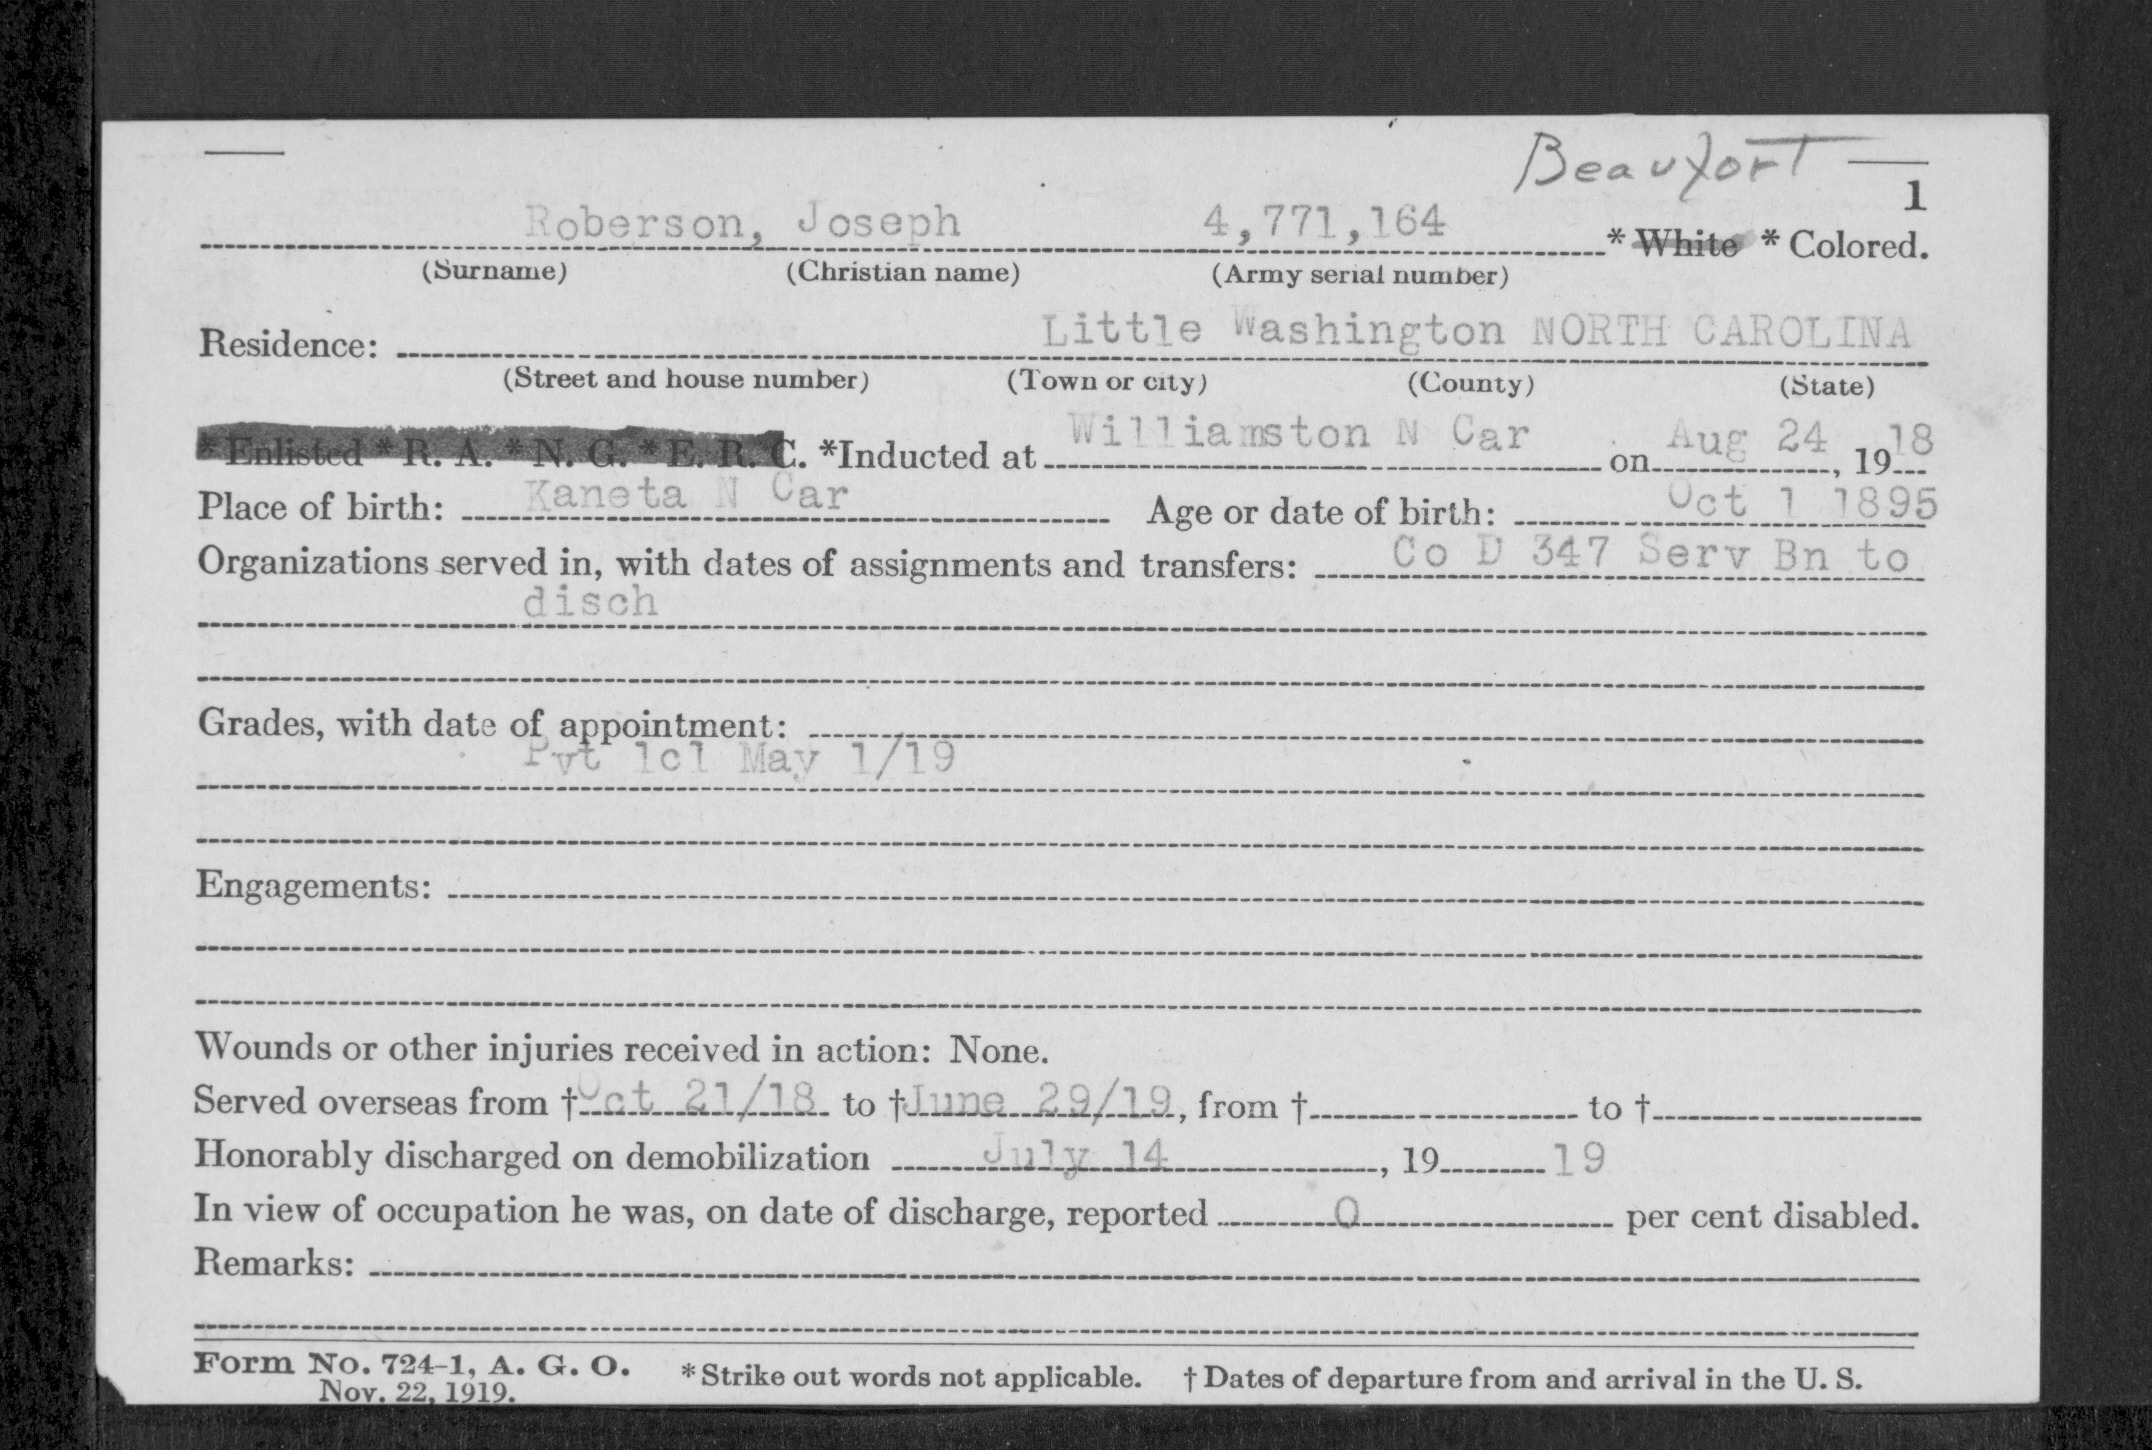 Beaufort
1
Roberson, Joseph 4,771,164 * White * Colored.
(Surname) (Christian name) (Army serial number)
Residence: Little Washington NORTH CAROLINA
(Street and house number) (Town or city) (County) (State)
* Enlisted * R. A. * N. G. * E. R. C. *Inducted at Williamston N Car on Aug 24, 1918
Place of birth: Kaneta N Car Age or date of birth: Oct 1 1895
Organizations served in, with dates of assignments and transfers: Co D 347 Serv Bn to
disch
Grades, with date of appointment:
Pvt 1cl May 1/19
Engagements:
Wounds or other injuries received in action: None.
Served overseas from † Oct 21/18 to † June 29/19, from † to †
Honorably discharged on demobilization July 14, 19 19
In view of occupation he was, on date of discharge, reported 0 per cent disabled.
Remarks:
Form No. 724-1, A. G. O. * Strike out words not applicable. † Dates of departure from and arrival in the U. S.
Nov. 22, 1919.